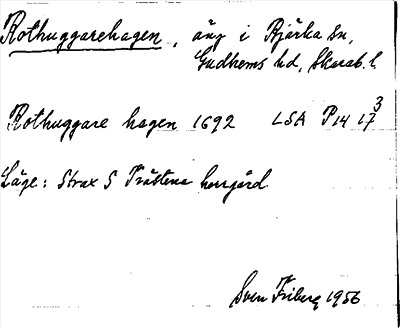 Rothuggarehagen, äng i Bjärka sn,
Gudhems hd, Skarab. l.
Rothuggare hagen 1692 LSA P14 17³
Läge: Strax S Prästens herrgård
Sven Friberg 1956